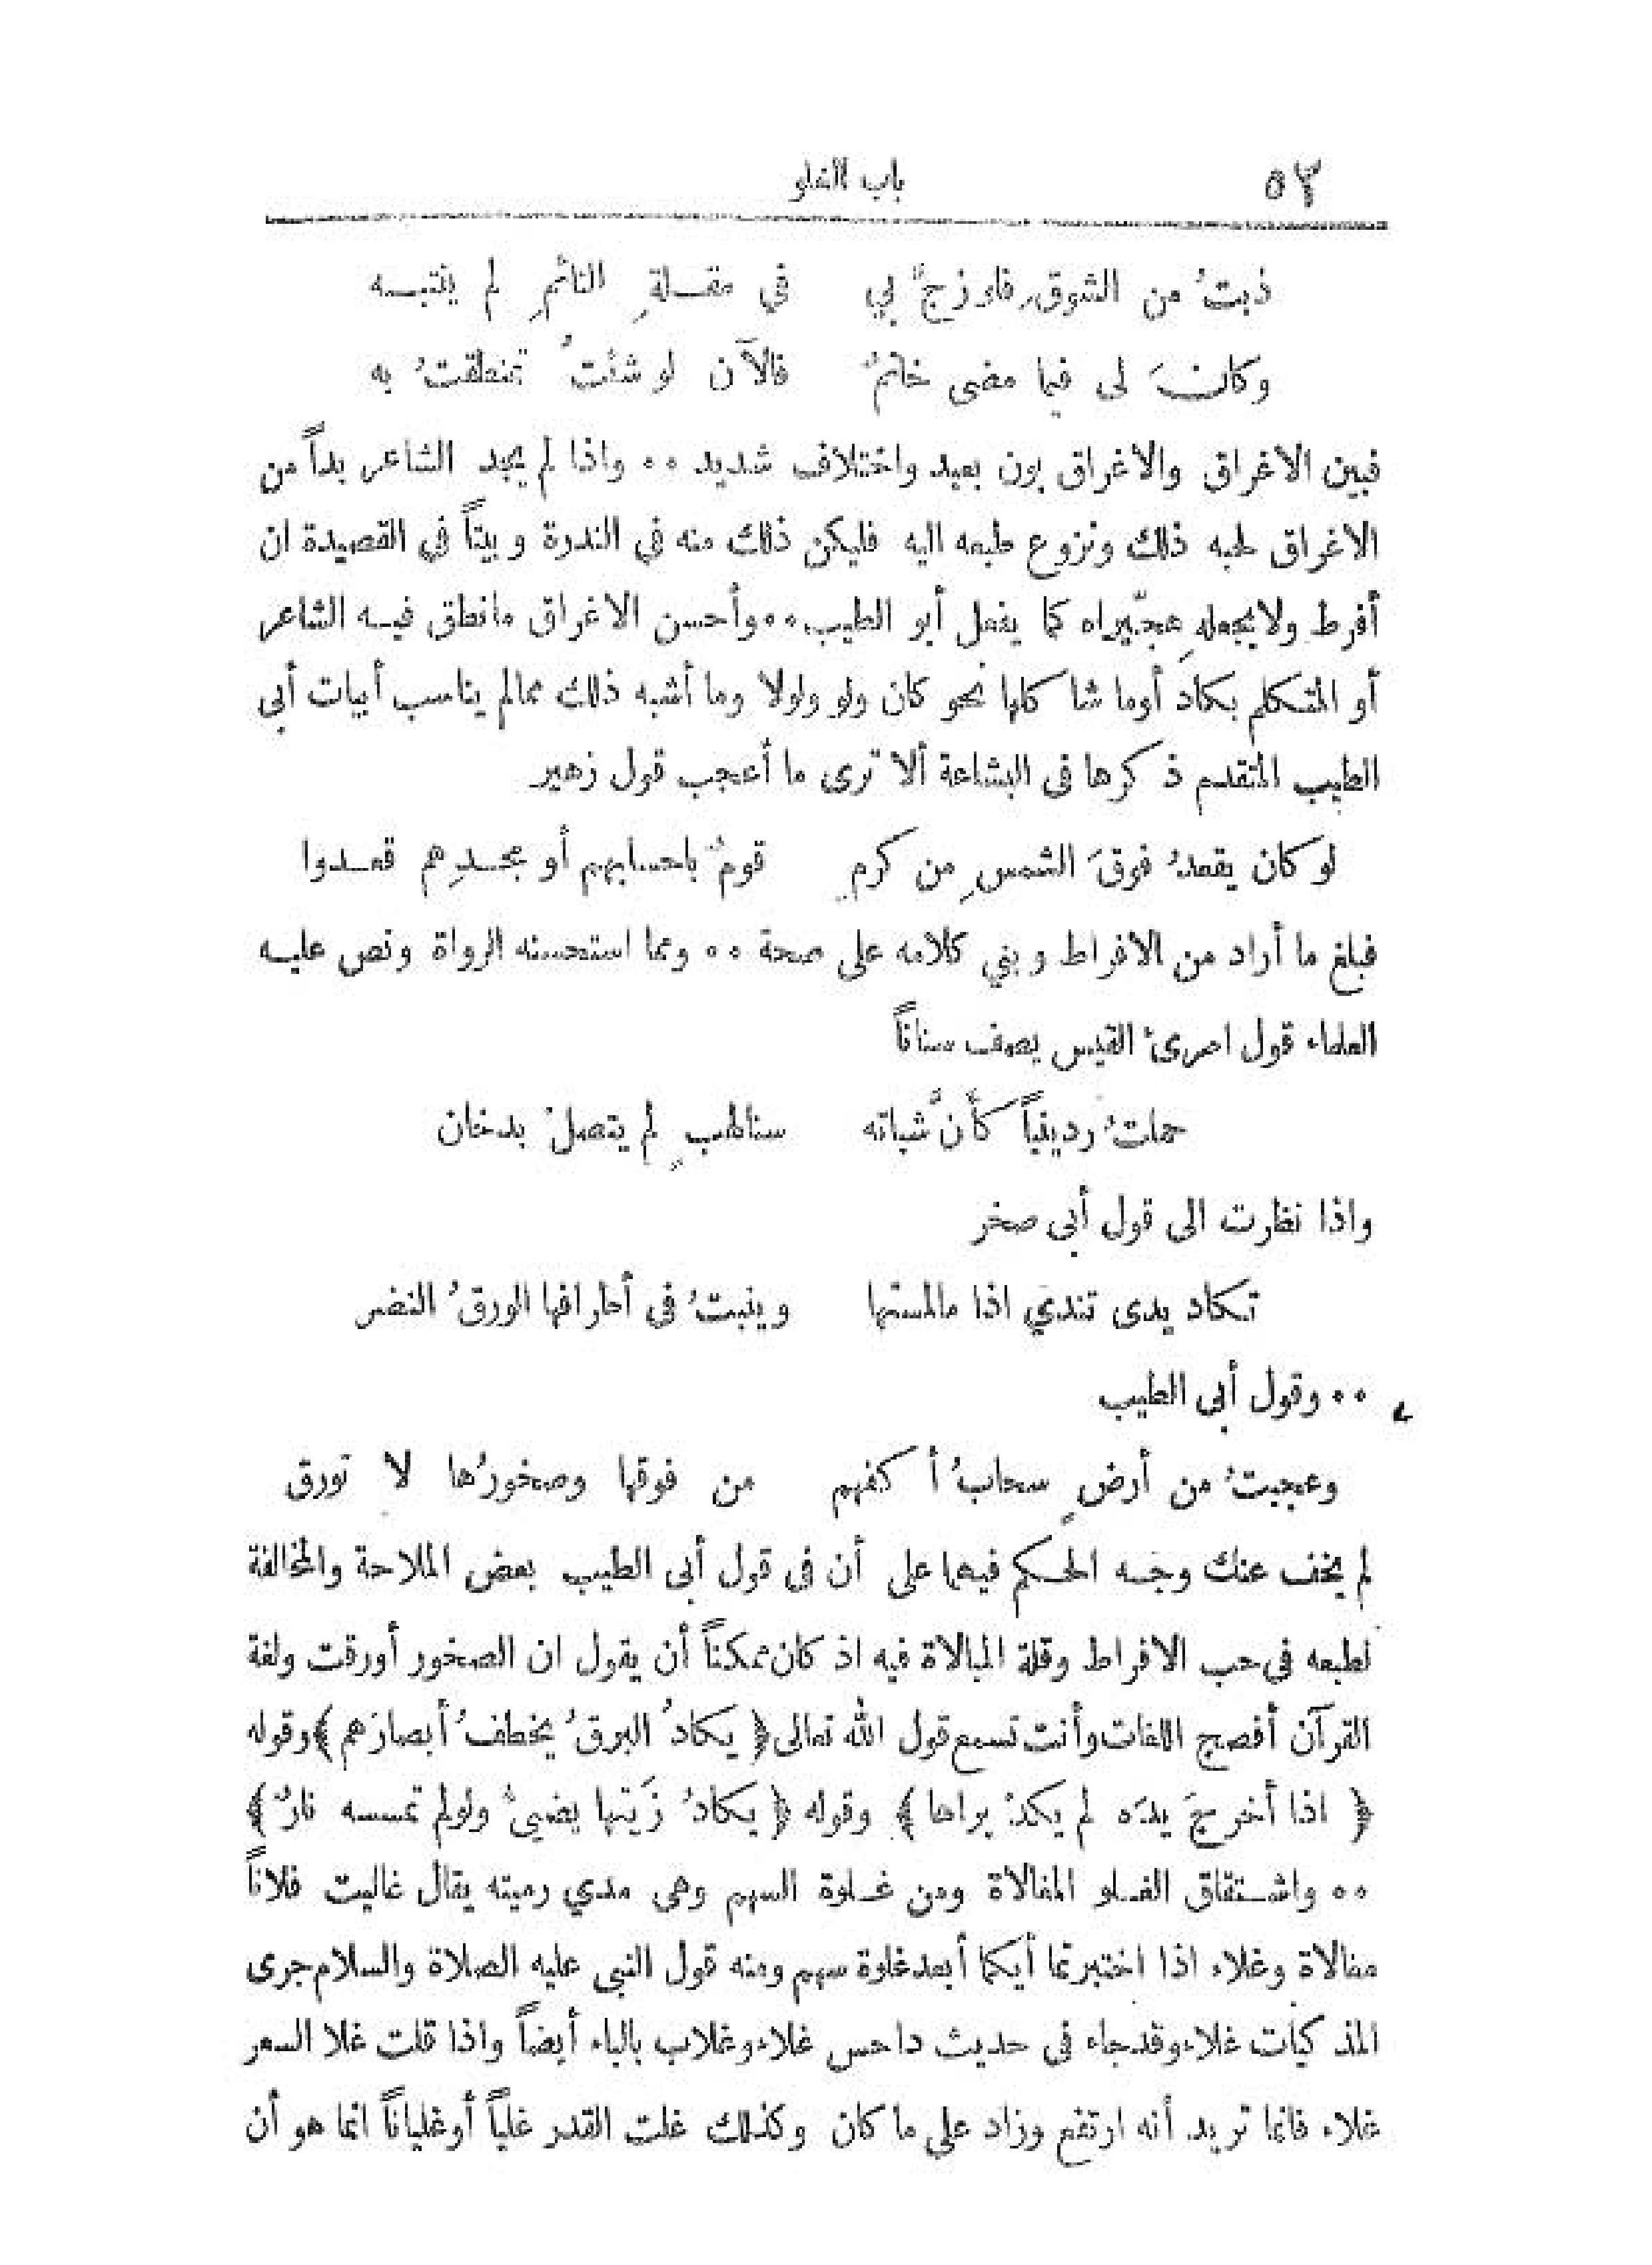 ٥٣ باب الغلو
ذبتُ من الشوق فلو زجَّ بي في مقلةِ النائمِ لم ينتبه
وكانَ لى فيما مضى خاتمٌ فالآن لو شئتُ تمنطقتُ به
فبين الاغراق والاغراق بون بعيد واختلاف شديد ٠٠ واذا لم يجد الشاعر بداً من
الاغراق لحبه ذلك ونزوع طبعه اليه فليكن ذلك منه في الندرة وبيتاً في القصيدة ان
أفرط ولايجعله هجّيراه كما يفعل أبو الطيب ٠٠ وأحسن الاغراق مانطق فيه الشاعر
أو المتكلم بكاد أوما شاكلها نحو كان ولو ولولا وما أشبه ذلك ممالم يناسب أبيات أبى
الطيب المتقدم ذكرها فى البشاعة ألا ترى ما أعجب قول زهير
لو كان يقعدُ فوقَ الشمسِ من كرمٍ قومٌ باحسابهم أو مجدِهم قعدوا
فبلغ ما أراد من الافراط وبني كلامه على صحة ٠٠ ومما استحسنه الرواة ونص عليه
العلماء قول امرئ القيس يصف سناناً
حملتُ ردينياً كأنَّ شباته سنالهبٍ لم يتصلْ بدخان
واذا نظرت الى قول أبى صخر
تكاد يدى تندي اذا مالمستها وينبتُ فى أطرافها الورقُ النضر
٠٠ وقول أبى الطيب
وعجبتُ من أرضٍ سحابُ أكفهم من فوقها وصخورُها لا تورق
لم يخف عنك وجه الحكم فيهما على أن فى قول أبى الطيب بعض الملاحة والمخالفة
لطبعه فى حب الافراط وقلة المبالاة فيه اذ كان ممكناً أن يقول ان الصخور أورقت ولغة
القرآن أفصح اللغات وأنت تسمع قول الله تعالى ﴿ يكادُ البرقُ يخطفُ أبصارَهم ﴾ وقوله
﴿ اذا أخرجَ يدَه لم يكدْ يراها ﴾ وقوله ﴿ يكادُ زَيتها يضيئُ ولولم تمسسه نارٌ ﴾
٠٠ واشتقاق الغلو المغالاة ومن غلوة السهم وهى مدي رميته يقال غاليت فلاناً
مغالاة وغلاء اذا اختبرتما أيكما أبعد غلوة سهم ومنه قول النبى عليه الصلاة والسلام جرى
المذكيات غلاء وقدجاء فى حديث داحس غلاء وغلاب بالباء أيضاً واذا قلت غلا السعر
غلاء فانما تريد أنه ارتفع وزاد على ما كان وكذلك غلت القدر غلياً أوغلياناً انما هو أن